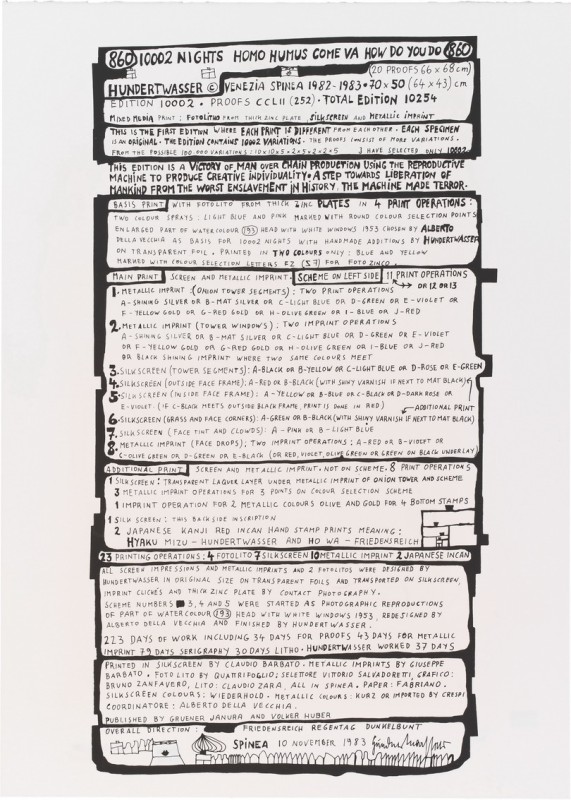 860 10002 NIGHTS HOMO HUMUS COME VA HOW DO YOU DO 860
(20 PROOFS 66 x 68 cm)
HUNDERTWASSER © VENEZIA SPINEA 1982-1983 • 70 x 50 (64 x 43) cm
EDITION 10002 • PROOFS CCLII (252) • TOTAL EDITION 10254
MIXED MEDIA PRINT: FOTOLITO FROM THICK ZINC PLATE SILKSCREEN AND METALLIC IMPRINT
THIS IS THE FIRST EDITION WHERE EACH PRINT IS DIFFERENT FROM EACH OTHER. EACH SPECIMEN
IS AN ORIGINAL. THE EDITION CONTAINS 10002 VARIATIONS. THE PROOFS CONSIST OF MORE VARIATIONS.
FROM THE POSSIBLE 100.000 VARIATIONS I HAVE SELECTED ONLY 10002.
THIS EDITION IS A VICTORY OF MAN OVER CHAIN PRODUCTION USING THE REPRODUCTIVE
MACHINE TO PRODUCE CREATIVE INDIVIDUALITY. A STEP TOWARDS LIBERATION OF
MANKIND FROM THE WORST ENSLAVEMENT IN HISTORY. THE MACHINE MADE TERROR.
BASIS PRINT WITH FOTOLITO FROM THICK ZINC PLATES IN 4 PRINT OPERATIONS:
TWO COLOUR SPRAYS: LIGHT BLUE AND PINK MARKED WITH ROUND COLOUR SELECTION POINTS
ENLARGED PART OF WATERCOLOUR 193 HEAD WITH WHITE WINDOWS 1953 CHOSEN BY ALBERTO
DELLA VECCHIA AS BASIS FOR 10002 NIGHTS WITH HANDMADE ADDITIONS BY HUNDERTWASSER
ON TRANSPARENT FOIL. PRINTED IN TWO COLOURS ONLY: BLUE AND YELLOW
MARKED WITH COLOUR SELECTION LETTERS FOR FOTO ZINCO.
MAIN PRINT SCREEN AND METALLIC IMPRINT. SCHEME ON LEFT SIDE 11 PRINT OPERATIONS
OR 12 OR 13
1. METALLIC IMPRINT (ONION TOWER SEGMENTS); TWO PRINT OPERATIONS
A-SHINING SILVER OR B-MAT SILVER OR C-LIGHT BLUE OR D-GREEN OR E-VIOLET OR
F-YELLOW GOLD OR G-RED GOLD OR H-OLIVE GREEN OR I-BLUE OR J-RED
2. METALLIC IMPRINT (TOWER WINDOWS); TWO IMPRINT OPERATIONS
A-SHINING SILVER OR B-MAT SILVER OR C-LIGHT BLUE OR D-GREEN OR E-VIOLET
OR F-YELLOW GOLD OR G-RED GOLD OR H-OLIVE GREEN OR I-BLUE OR J-RED
OR BLACK SHINING IMPRINT WHERE TWO SAME COLOURS MEET
3. SILKSCREEN (TOWER SEGMENTS): A-BLACK OR B-YELLOW OR C-LIGHT BLUE OR D-ROSE OR E-GREEN
4. SILKSCREEN (OUTSIDE FACE FRAME): A-RED OR B-BLACK (WITH SHINY VARNISH IF NEXT TO MAT BLACK)
5. SILKSCREEN (INSIDE FACE FRAME): A-YELLOW OR B-BLUE OR C-BLACK OR D-DARK ROSE OR
E-VIOLET. (IF C-BLACK MEETS OUTSIDE BLACK FRAME, PRINT IS DONE IN RED) ADDITIONAL PRINT
6. SILKSCREEN (GRASS AND FACE CORNERS): A-GREEN OR B-BLACK (WITH SHINY VARNISH IF NEXT TO MAT BLACK)
7. SILKSCREEN (FACE TINT AND CLOWDS): A-PINK OR B-LIGHT BLUE
8. METALLIC IMPRINT (FACE DROPS); TWO IMPRINT OPERATIONS: A-RED OR B-VIOLET OR
C-OLIVE GREEN OR D-GREEN OR E-BLACK (OR RED, VIOLET, OLIVE GREEN OR GREEN ON BLACK UNDERLAY)
ADDITIONAL PRINT SCREEN AND METALLIC IMPRINT. NOT ON SCHEME. 8 PRINT OPERATIONS
1 SILKSCREEN: TRANSPARENT LAQUER LAYER UNDER METALLIC IMPRINT OF ONION TOWER AND SCHEME
3 METALLIC IMPRINT OPERATIONS FOR 3 POINTS ON COLOUR SELECTION SCHEME
1 IMPRINT OPERATION FOR 2 METALLIC COLOURS OLIVE AND GOLD FOR 4 BOTTOM STAMPS
1 SILK SCREEN: THIS BACKSIDE INSCRIPTION
2 JAPANESE KANJI RED INCAN HAND STAMP PRINTS MEANING:
HYAKU MIZU - HUNDERTWASSER AND HO WA - FRIEDENSREICH
23 PRINTING OPERATIONS: 4 FOTOLITO 7 SILKSCREEN 10 METALLIC IMPRINT 2 JAPANESE INCAN
ALL SCREEN IMPRESSIONS AND METALLIC IMPRINTS AND 2 FOTOLITOS WERE DESIGNED BY
HUNDERTWASSER IN ORIGINAL SIZE ON TRANSPARENT FOILS AND TRANSPORTED ON SILKSCREEN,
IMPRINT CLICHÉS AND THICK ZINC PLATE BY CONTACT PHOTOGRAPHY.
SCHEME NUMBERS 3, 4 AND 5 WERE STARTED AS PHOTOGRAPHIC REPRODUCTIONS
OF PART OF WATERCOLOUR 193 HEAD WITH WHITE WINDOWS 1953, REDESIGNED BY
ALBERTO DELLA VECCHIA AND FINISHED BY HUNDERTWASSER.
223 DAYS OF WORK INCLUDING 34 DAYS FOR PROOFS 43 DAYS FOR METALLIC
IMPRINT 79 DAYS SERIGRAPHY 30 DAYS LITHO. HUNDERTWASSER WORKED 37 DAYS
PRINTED IN SILKSCREEN BY CLAUDIO BARBATO. METALLIC IMPRINTS BY GIUSEPPE
BARBATO. FOTO LITO BY QUATTRIFOGLIO; SELETTORE VITTORIO SALVADORETTI, GRAFICO:
BRUNO ZANFAVERO, LITO: CLAUDIO ZARA, ALL IN SPINEA. PAPER: FABRIANO.
SILKSCREEN COLOURS: WIEDERHOLD. METALLIC COLOURS: KURZ OR IMPORTED BY CRESPI
COORDINATORE: ALBERTO DELLA VECCHIA.
PUBLISHED BY GRUENER JANURA AND VOLKER HUBER
OVERALL DIRECTION: FRIEDENSREICH REGENTAG DUNKELBUNT
SPINEA 10 NOVEMBER 1983